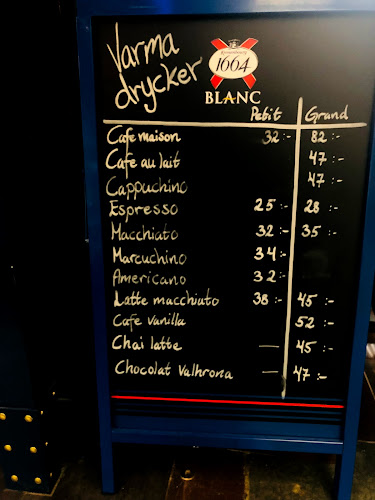 Varma
drycker
Kronenbourg
1664
BLANC
Petit Grand
Cafe maison 32:- 82:-
Cafe au lait 47:-
Cappuchino 47:-
Espresso 25:- 28:-
Macchiato 32:- 35:-
Marcuchino 34:-
Americano 32:-
Latte macchiato 38:- 45:-
Cafe vanilla 52:-
Chai latte — 45:-
Chocolat Valhrona — 47:-